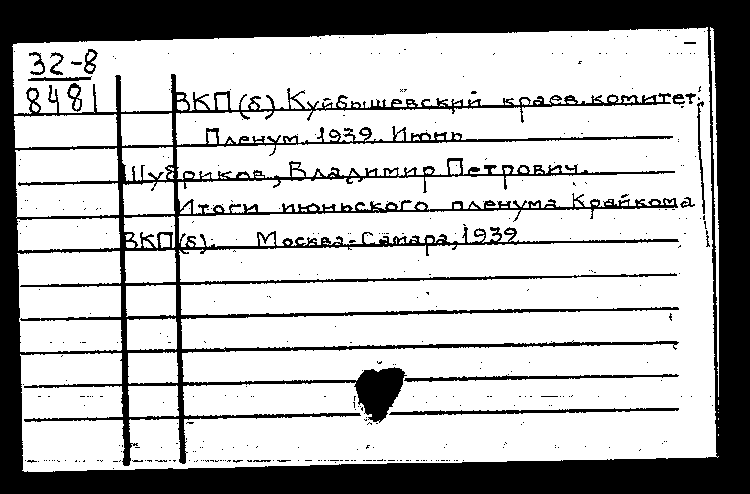 32-8
8481
ВКП(б). Куйбышевский краев. комитет.
Пленум. 1939. Июнь
Шубриков, Владимир Петрович.
Итоги июньского пленума Крайкома
ВКП(б). Москва-Самара, 1939